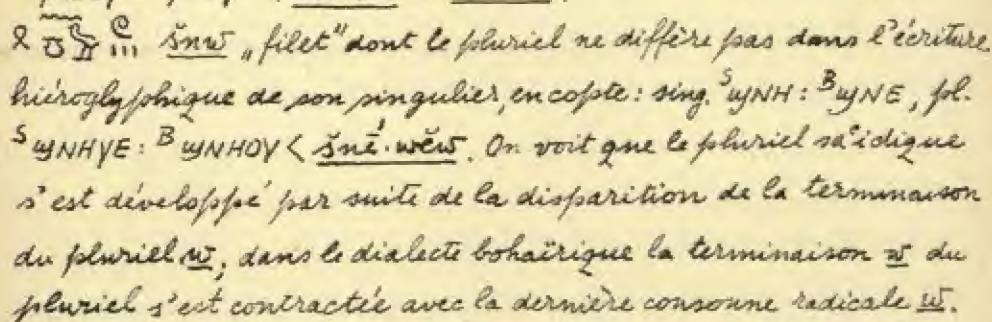 šnw „filet" dont le pluriel ne diffère pas dans l'écriture
hiéroglyphique de son singulier, en copte: sing. ˢϣΝΗ : ᴮϣΝΕ, pl.
ˢϣΝΗΥΕ : ᴮϣΝΗΟΥ < šnḗ·wĕw. On voit que le pluriel sa'idique
s'est développé par suite de la disparition de la terminaison
du pluriel w; dans le dialecte bohaïrique la terminaison w du
pluriel s'est contractée avec la dernière consonne radicale w.